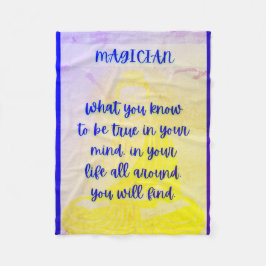 MAGICIAN
What you know
to be true in your
mind, in your
life all around,
you will find.